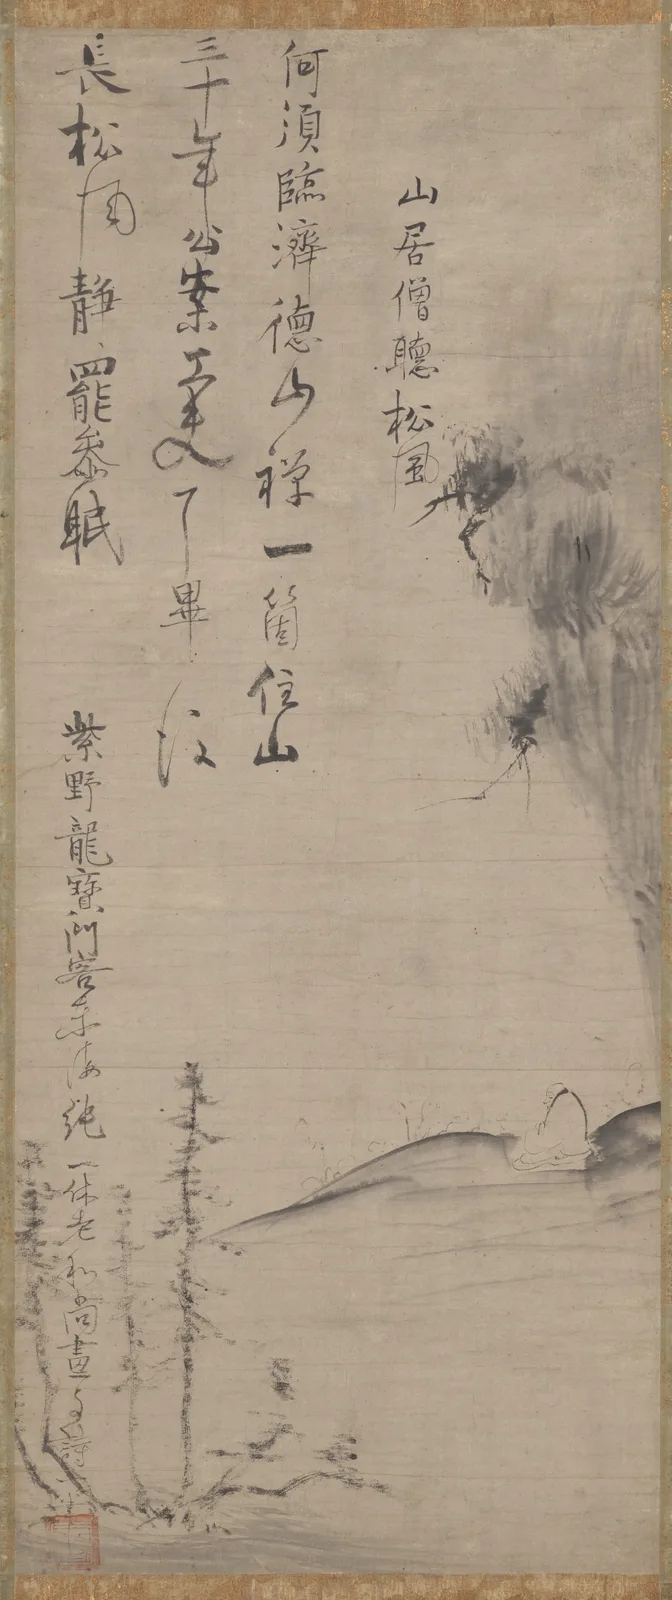 山居僧聽松風
何須臨濟德山禅一箇住山
三十年公案更了畢後
長松風靜罷参眠
紫野龍寶門客東海純一休老和尚畫
詩